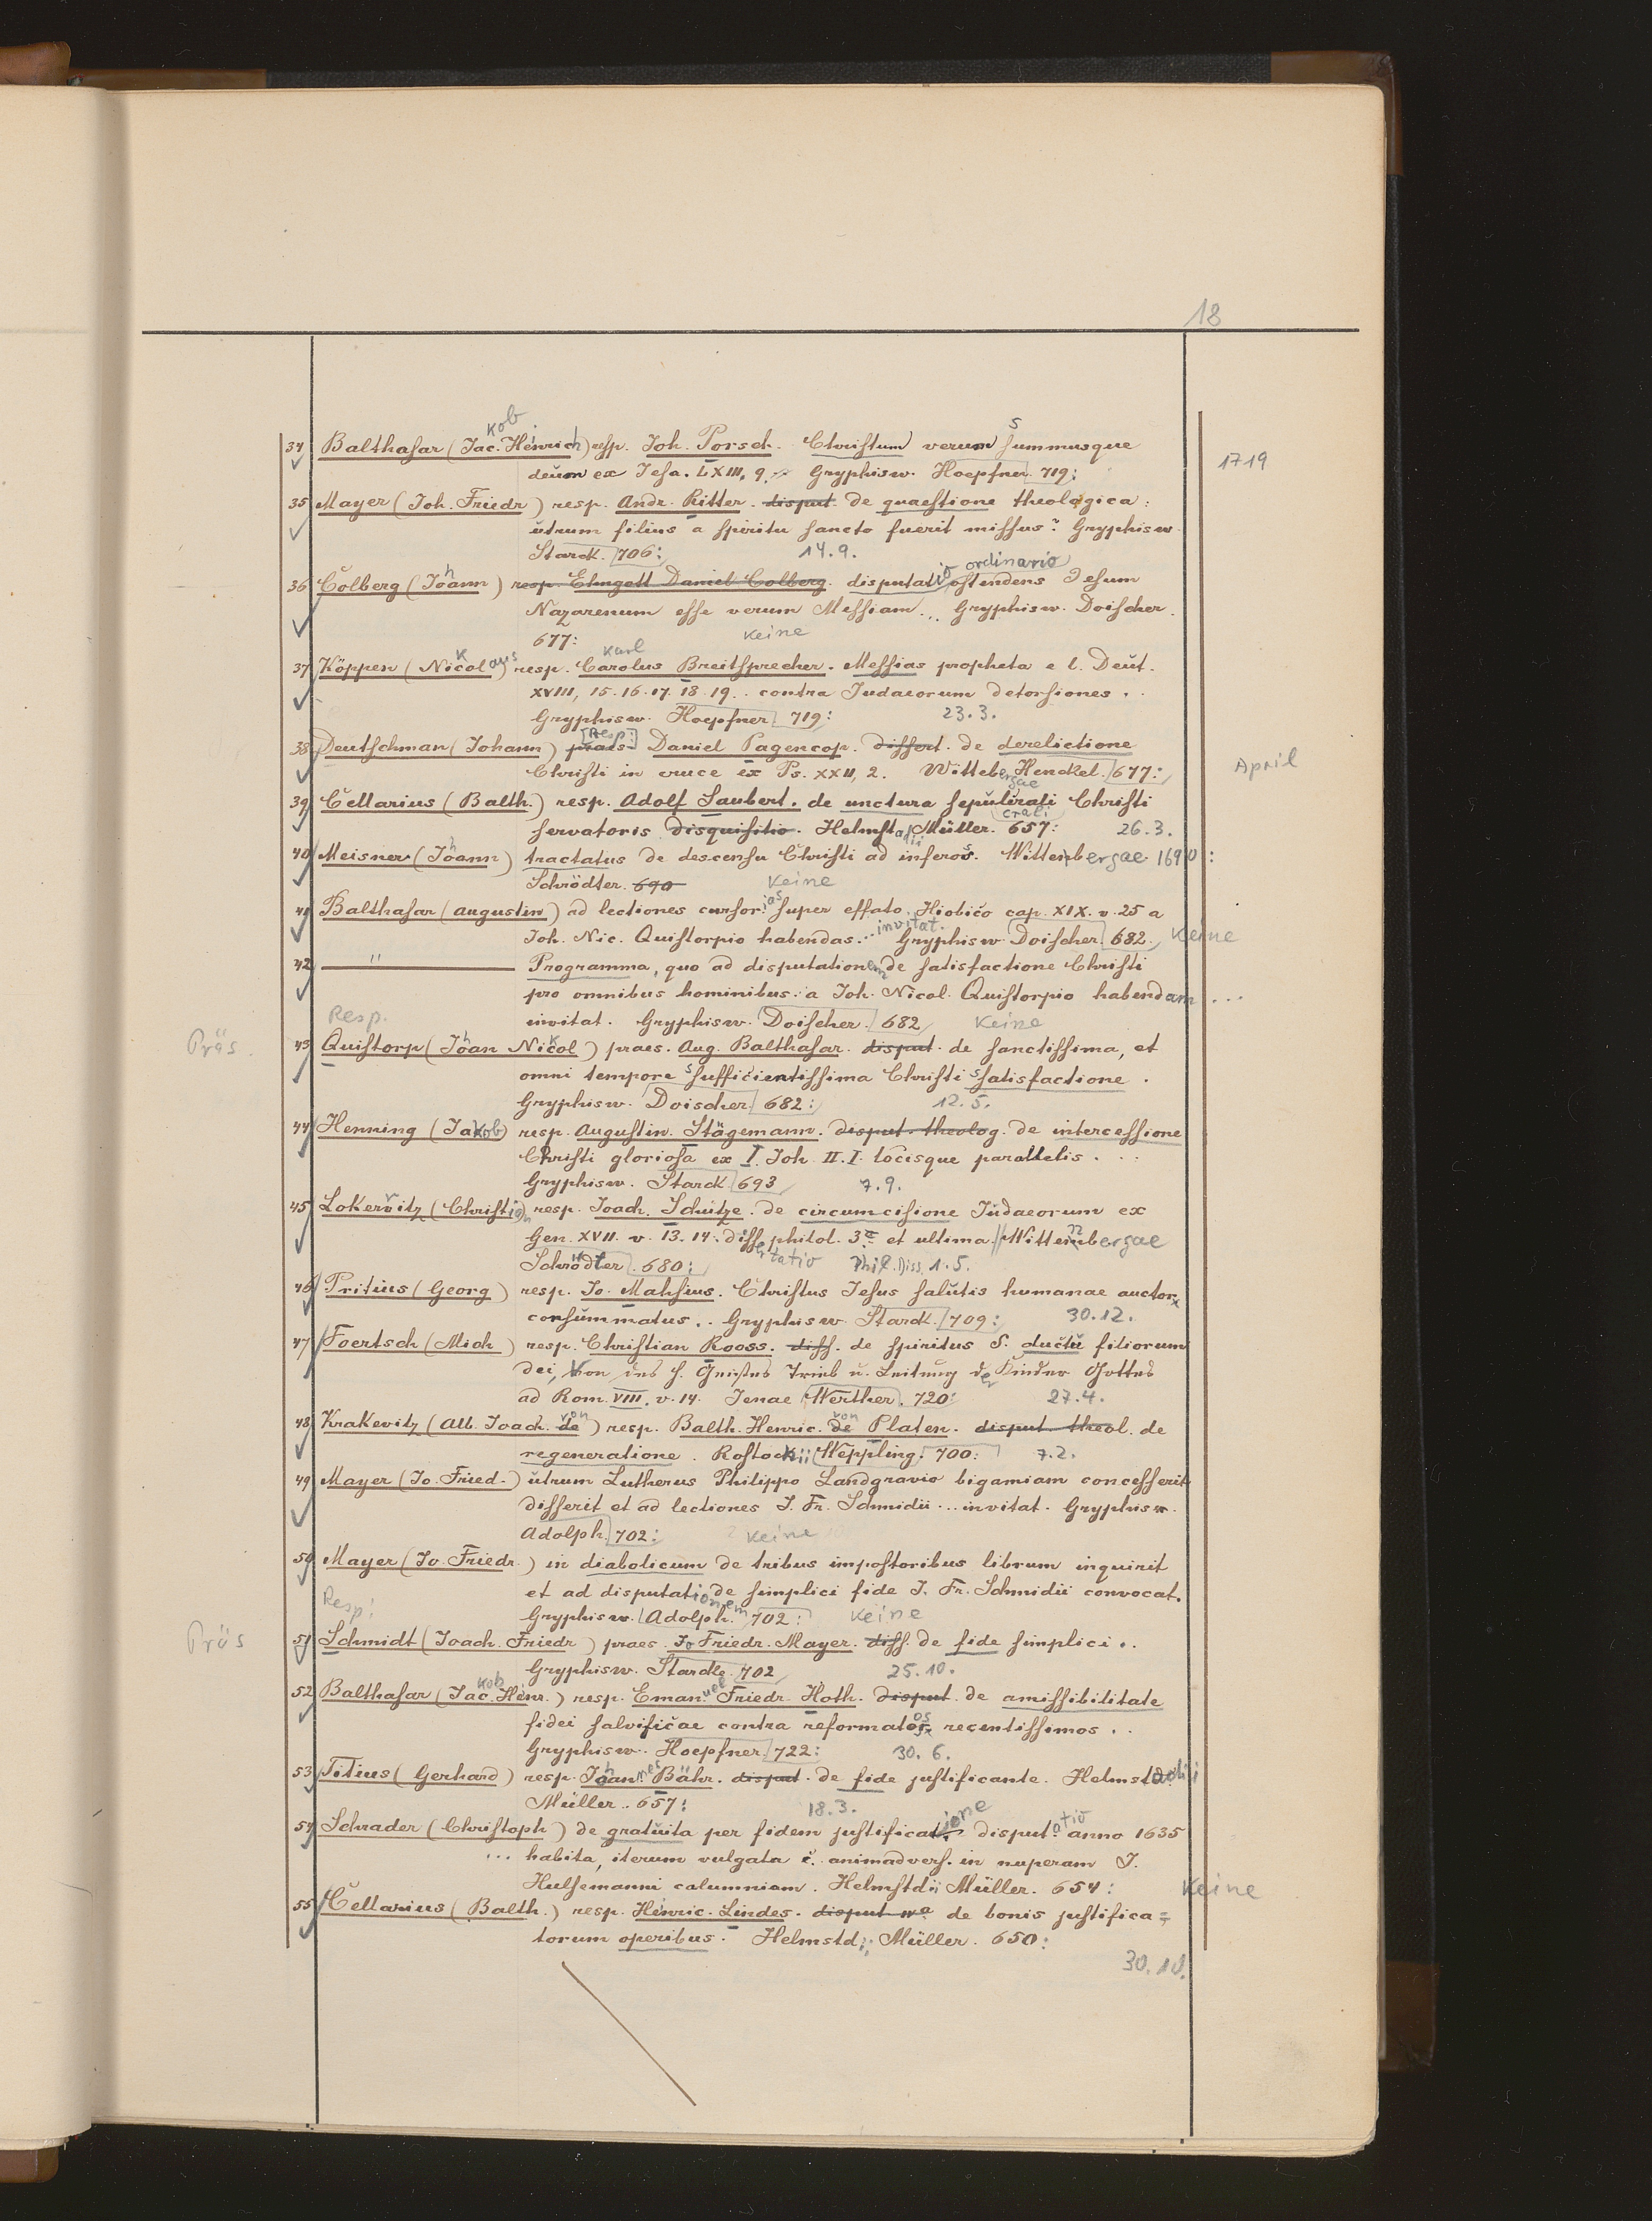 18
34 Balthasar (Jac.kob Heinrich) resp. Joh. Porsch. Christum verum summusque
deum ex Jesa. LXIII, 9. Gryphisw. Hoepfner 719:
1719
35 Mayer (Joh. Friedr) resp. Andr. Ritter. disput. de quaestione theologica:
utrum filius a spiritu sancto fuerit missus? Gryphisw.
Starck. 706: 14.9.
36 Colberg (Johann) resp. Daniel Colberg. disputatio ordinario ostendens Jesum
Nazarenum esse verum Messiam... Gryphisw. Doischer.
677: Keine
37 Köppen (Nicolaus) resp. Carolus Karl Breitsprecher. Messias propheta e l. Deut.
XVIII, 15.16.17.18.19.. contra Judaeorum detorsiones..
Gryphisw. Hoepfner 719: 23.3.
38 Deutschman (Johann) praes. Resp: Daniel Pagencop. dissert. de derelictione
Christi in cruce ex Ps. XXII, 2. Wittebergae Henckel. 677:
April
39 Cellarius (Balth.) resp. Adolf Saubert. de unctura sepulcrali Christi
servatoris disquisitio. Helmstadii Müller. 657: 26.3.
40 Meisner (Johann) tractatus de descensu Christi ad inferos. Wittenbergae 1690:
Schrödter. 690 Keine
41 Balthasar (Augustin) ad lectiones cursorias super effato Hiobico cap. XIX. v. 25 a
Joh. Nic. Quistorpio habendas... invitat. Gryphisw. Doischer. 682. Keine
42 " Programma, quo ad disputationem de satisfactione Christi
pro omnibus hominibus: a Joh. Nicol. Quistorpio habendam ...
invitat. Gryphisw. Doischer. 682 Keine
Resp.
Präs.
43 Quistorp (Johan Nickol) praes. Aug. Balthasar. disput. de sanctissima, et
omni tempore sufficientissima Christi satisfactione.
Gryphisw. Doischer 682: 12.5.
44 Henning (Jakob) resp. Augustin. Stägemann. disput. theolog. de intercessione
Christi gloriosa ex I. Joh. II. I. locisque parallelis...
Gryphisw. Starck. 693 7.9.
45 Lokervitz (Christian) resp. Joach. Schütze. de circumcisione Judaeorum ex
Gen. XVII. v. 13. 14. dissertatio philol. 3a et ultima. Wittenbergae
Schrödter. 680: Phil. Diss. 1.5.
46 Pritius (Georg) resp. Jo. Mahsius. Christus Jesus salutis humanae auctor
consummatus.. Gryphisw. Starck. 709: 30.12.
47 Foertsch (Mich) resp. Christian Rooss. diss. de spiritus S. ductu filiorum
dei, Von des h. Geistes Trieb u. Leitung der Kinder Gottes
ad Rom. VIII. v. 14. Jenae Werther. 720: 27.4.
48 Krakevitz (Alb. Joach. de von) resp. Balth. Henric. de von Platen. disput. theol. de
regeneratione. Rostockii Weppling. 700: 7.2.
49 Mayer (Jo. Fried.) utrum Lutherus Philippo Landgravio bigamiam concesserit
disserit et ad lectiones J. Fr. Schmidii... invitat. Gryphisw.
Adolph. 702: Keine
50 Mayer (Jo. Friedr.) in diabolicum de tribus impostoribus librum inquirit
et ad disputationem de simplici fide J. Fr. Schmidii convocat.
Gryphisw. Adolph. 702: Keine
Resp!
Präs
51 Schmidt (Joach. Friedr) praes. Jo Friedr. Mayer. diss. de fide simplici..
Gryphisw. Starcke. 702 25.10.
52 Balthasar (Jac.kob Heinr.) resp. Emanuel Friedr. Hoth. disput. de amissibilitate
fidei salvificae contra reformatos recentissimos..
Gryphisw. Hoepfner. 722: 30.6.
53 Titius (Gerhard) resp. Johannes Bähr. disput. de fide justificante. Helmstadii
Müller.. 657: 18.3.
54 Schrader (Christoph) de gratuita per fidem justificatione disputatio anno 1635
... habita, iterum vulgata c. animadvers. in nuperam J.
Hulsemanni calumniam. Helmstdii Müller. 654: Keine
55 Cellarius (Balth.) resp. Heinric. Lindes. disput de bonis justifica=
torum operibus. Helmstdii Müller. 650:
30.10.